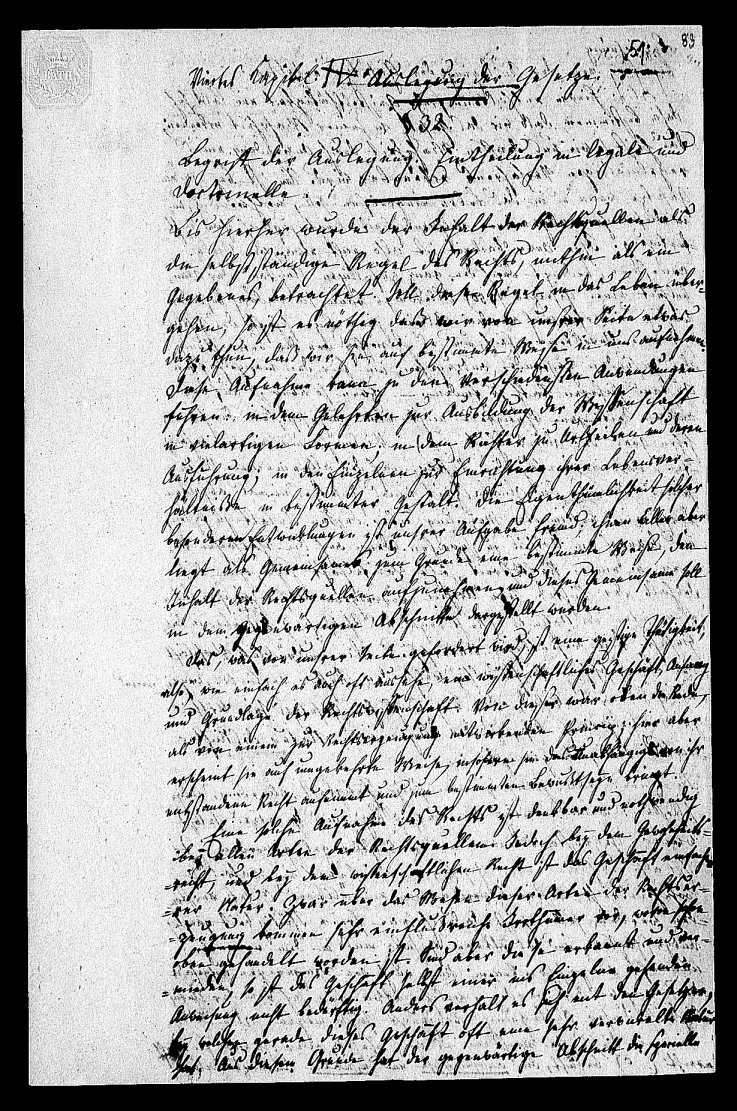 51. 83
Viertes Kapitel. IV. Auslegung der Gesetze.
§ 32
Begriff der Auslegung. Eintheilung in legale und
doctrinelle.
Bis hierher wurde der Inhalt der Rechtsquellen als
die selbstständige Regel des Rechts, mithin als ein
Gegebenes, betrachtet. Soll diese Regel in das Leben über-
gehen, so ist es nöthig daß wir von unsrer Seite etwas
dazu thun, daß wir sie auf bestimmte Weise in uns aufnehmen.
Diese Aufnahme kann zu den verschiedensten Anwendungen
führen: in dem Gelehrten zur Ausbildung der Wissenschaft
in vielartigen Formen; in dem Richter zu Urtheilen und deren
Ausführung; in den Einzelnen zur Einrichtung ihrer Lebensver-
hältnisse in bestimmter Gestalt. Die Eigenthümlichkeit solcher
besonderen Entwicklungen ist unsrer Aufgabe fremd; ihnen Allen aber
liegt als Gemeinsames zum Grunde eine bestimmte Weise, den
Inhalt der Rechtsquellen aufzunehmen, und dieses Gemeinsame soll
in dem gegenwärtigen Abschnitte dargestellt werden.
Das, was von unsrer Seite gefordert wird, ist eine geistige Thätigkeit,
also, wie einfach es auch oft aussehe, ein wissenschaftliches Geschäft, Anfang
und Grundlage der Rechtswissenschaft. Von dieser war oben die Rede,
als von einem zur Rechtserzeugung mitwirkenden Princip; hier aber
erscheint sie auf umgekehrte Weise, insofern sie das unabhängig von ihr
entstandene Recht aufnimmt und zum bestimmten Bewußtseyn bringt.
Eine solche Aufnahme des Rechts ist denkbar und nothwendig
bey allen Arten der Rechtsquellen. Jedoch bey dem Gewohnheits-
recht, und bey dem wissenschaftlichen Recht ist das Geschäft einfache-
rer Natur. Zwar über das Wesen dieser Arten der Rechtser-
zeugung kommen sehr einflußreiche Irrthümer vor, wovon schon
oben gehandelt worden ist. Sind aber diese erkannt und ver-
mieden, so ist das Geschäft selbst einer ins Einzelne gehenden
Anweisung nicht bedürftig. Anders verhält es sich mit den Gesetzen,
bey welchen gerade dieses Geschäft oft eine sehr verwickelte Natur
hat. Aus diesem Grunde hat der gegenwärtige Abschnitt die specielle